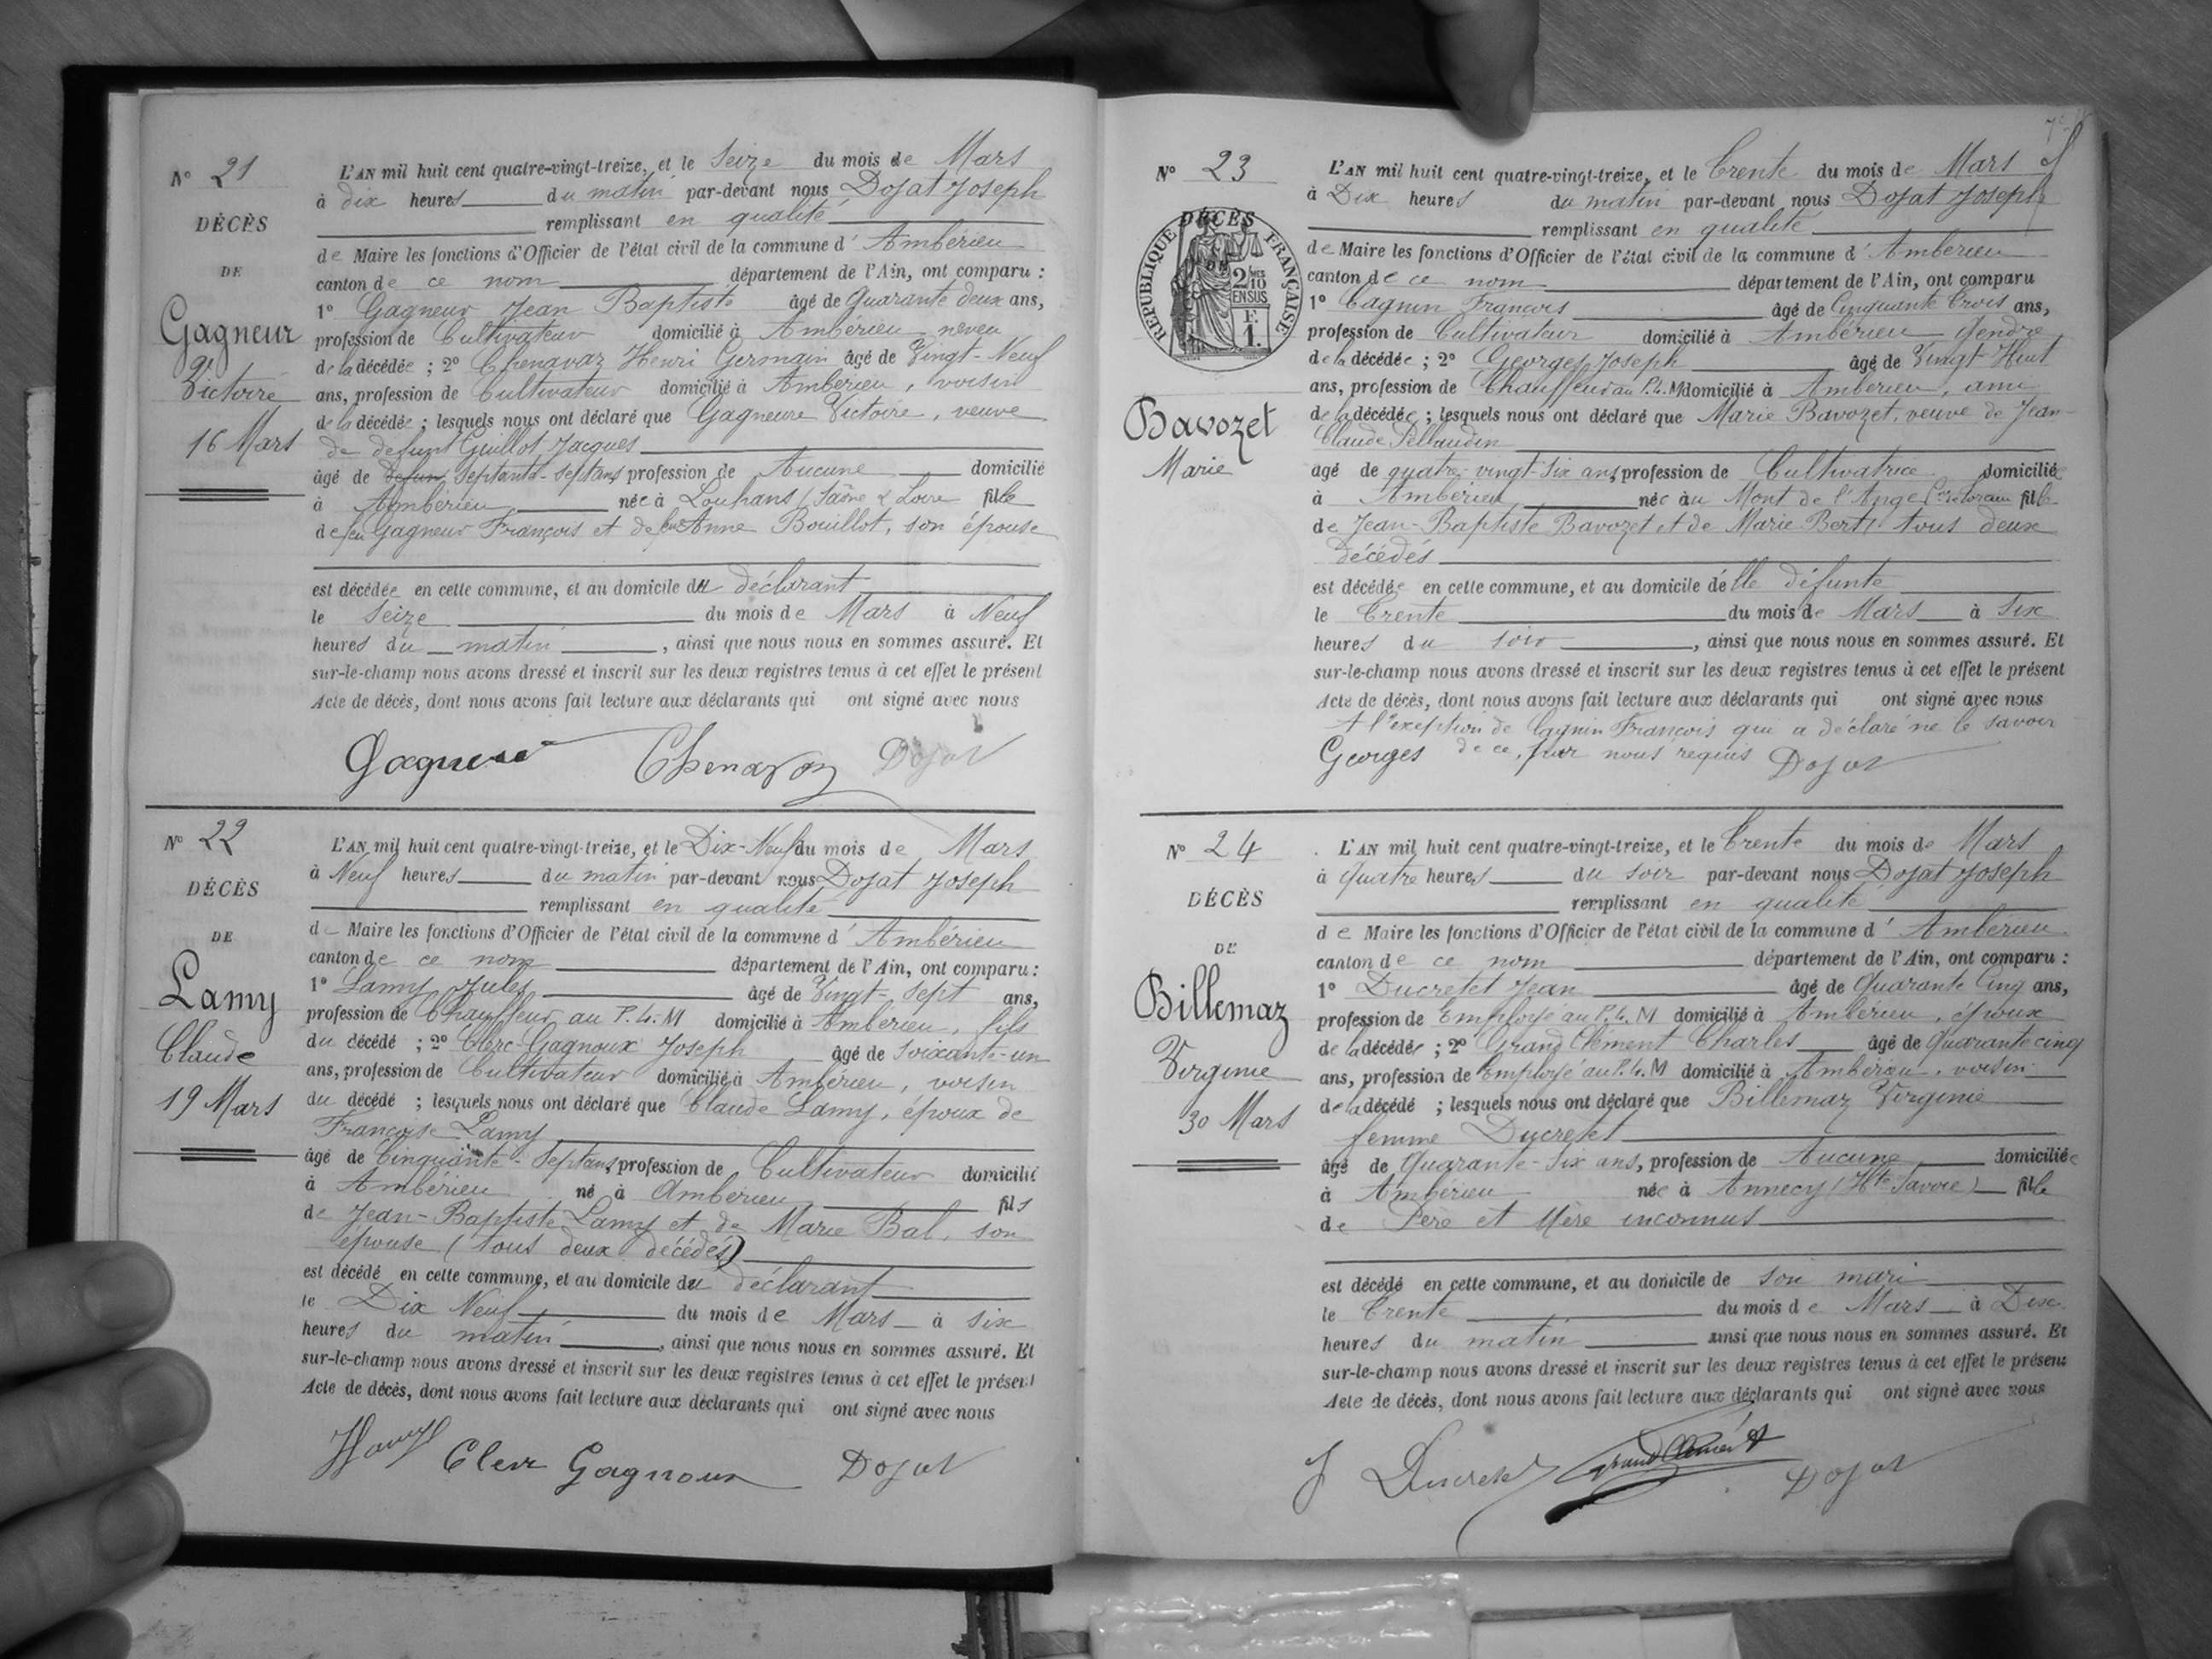 N° 21
DÉCÈS
DE
Gagneur
Vve
Victoire
16 Mars
L'AN mil huit cent quatre-vingt-treize, et le Seize du mois de Mars
à dix heures du matin par-devant nous Dojat Joseph
remplissant en qualité
de Maire les fonctions d'Officier de l'état civil de la commune d'Ambérieu
canton de ce nom département de l'Ain, ont comparu :
1° Gagneur Jean Baptiste âgé de Quarante deux ans,
profession de Cultivateur domicilié à Ambérieu neveu
de la décédée ; 2° Chenavaz Henri Germain âgé de Vingt-Neuf
ans, profession de Cultivateur domicilié à Ambérieu, voisin
de la décédée ; lesquels nous ont déclaré que Gagneure Victoire, veuve
de defunt Guillot Jacques
âgé de Septante-sept ans profession de Aucune domicilié
à Ambérieu née à Louhans (Saône & Loire fille
de feu Gagneur François et de feue Anne Bouillot, son épouse
est décédée en cette commune, et au domicile du déclarant
le Seize du mois de Mars à Neuf
heures du matin, ainsi que nous nous en sommes assuré. Et
sur-le-champ nous avons dressé et inscrit sur les deux registres tenus à cet effet le présent
Acte de décès, dont nous avons fait lecture aux déclarants qui ont signé avec nous
Gagneur Chenavaz Dojat
N° 22
DÉCÈS
DE
Lamy
Claude
19 Mars
L'AN mil huit cent quatre-vingt-treize, et le Dix-Neuf du mois de Mars
à Neuf heures du matin par-devant nous Dojat Joseph
remplissant en qualité
de Maire les fonctions d'Officier de l'état civil de la commune d'Ambérieu
canton de ce nom département de l'Ain, ont comparu :
1° Lamy Jules âgé de Vingt-Sept ans,
profession de Chauffeur au P.L.M domicilié à Ambérieu, fils
du décédé ; 2° Clerc-Gagnoux Joseph âgé de soixante-un
ans, profession de Cultivateur domicilié à Ambérieu, voisin
du décédé ; lesquels nous ont déclaré que Claude Lamy, époux de
Françoise Lamy
âgé de Cinquante-Sept ans, profession de Cultivateur domicilié
à Ambérieu né à Ambérieu fils
de Jean-Baptiste Lamy et de Marie Bal, son
épouse (tous deux décédés)
est décédé en cette commune, et au domicile du déclarant
le Dix Neuf du mois de Mars à six
heures du matin, ainsi que nous nous en sommes assuré. Et
sur-le-champ nous avons dressé et inscrit sur les deux registres tenus à cet effet le présent
Acte de décès, dont nous avons fait lecture aux déclarants qui ont signé avec nous
Lamy Clerc Gagnoux Dojat
N° 23
DÉCÈS
DE
RÉPUBLIQUE FRANÇAISE
2/10 MES
EN SUS
1 F.
Bavozet
Marie
L'AN mil huit cent quatre-vingt-treize, et le Trente du mois de Mars
à Dix heures du matin par-devant nous Dojat Joseph
remplissant en qualité
de Maire les fonctions d'Officier de l'état civil de la commune d'Ambérieu
canton de ce nom département de l'Ain, ont comparu
1° Cagnin François âgé de Cinquante Trois ans,
profession de Cultivateur domicilié à Ambérieu Gendre
de la décédée ; 2° Georges Joseph âgé de Vingt-Huit
ans, profession de Chauffeur au P.L.M domicilié à Ambérieu, ami
de la décédée ; lesquels nous ont déclaré que Marie Bavozet, veuve de Jean-
Claude Pellaudin
âgé de quatre-vingt-six ans, profession de Cultivatrice domiciliée
à Ambérieu née au Mont de l'Ange fille
de Jean-Baptiste Bavozet et de Marie Berth tous deux
décédés
est décédée en cette commune, et au domicile d'elle défunte
le Trente du mois de Mars à Six
heures du soir, ainsi que nous nous en sommes assuré. Et
sur-le-champ nous avons dressé et inscrit sur les deux registres tenus à cet effet le présent
Acte de décès, dont nous avons fait lecture aux déclarants qui ont signé avec nous
A l'exeption de Cagnin François qui a déclaré ne le savoir
de ce, par nous requis
Georges Dojat
N° 24
DÉCÈS
DE
Billemaz
Virginie
30 Mars
L'AN mil huit cent quatre-vingt-treize, et le Trente du mois de Mars
à Quatre heures du soir par-devant nous Dojat Joseph
remplissant en qualité
de Maire les fonctions d'Officier de l'état civil de la commune d'Ambérieu
canton de ce nom département de l'Ain, ont comparu :
1° Ducretet Jean âgé de Quarante Cinq ans,
profession de Employé au P.L.M domicilié à Ambérieu, époux
de la décédée ; 2° Grand Clément Charles âgé de Quarante cinq
ans, profession de Employé au P.L.M domicilié à Ambérieu, voisin
de la décédé ; lesquels nous ont déclaré que Billemaz Virginie
femme Ducretet
âgé de Quarante-Six ans, profession de Aucune domiciliée
à Ambérieu née à Annecy (Hte Savoie) fille
de Père et Mère inconnus
est décédé en cette commune, et au domicile de son mari
le Trente du mois de Mars à Dix
heures du matin ainsi que nous nous en sommes assuré. Et
sur-le-champ nous avons dressé et inscrit sur les deux registres tenus à cet effet le présent
Acte de décès, dont nous avons fait lecture aux déclarants qui ont signé avec nous
J Ducretet Grand Clément Dojat